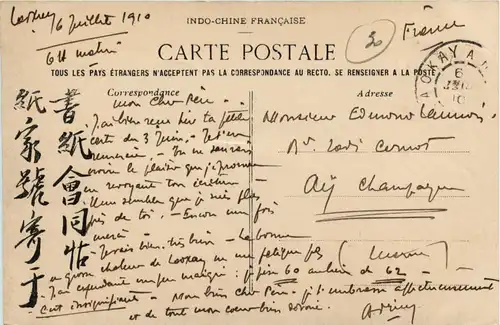 Laokay 16 juillet 1910
6H matin
INDO-CHINE FRANÇAISE
30
France
CARTE POSTALE
TOUS LES PAYS ÉTRANGERS N'ACCEPTENT PAS LA CORRESPONDANCE AU RECTO. SE RENSEIGNER A LA POSTE
LAOKAY
6
10
Correspondance
Adresse
書紙會同帖
紙家號寄于
mon cher Père.
J'ai bien reçu hier ta petite
carte du 3 Juin. Je t'en
remercie. Tu ne saurais
croire le plaisir que j'éprouve
en revoyant ton écriture
Il me semble que je suis plus
près de toi. Encore une fois
merci.
Je vais bien, très bien. La bonne
grosse chaleur de Laokay ne me fatigue pas
J'ai cependant un peu maigri: je pèse 60 au lieu de 62.
C'est insignifiant. Mon bien cher Père. je t'embrasse affectueusement
et de tout mon cœur bien
Monsieur Edmond
Bd. Sadi Carnot
Aÿ Champagne
(Marne)